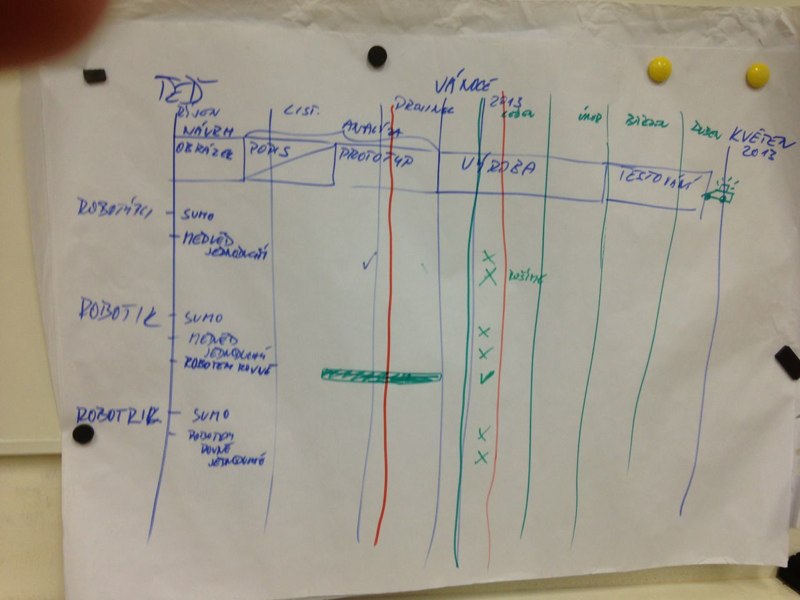 TEĎ
VÁNOCE
ŘÍJEN LIST. PROSINEC 2013 LEDEN ÚNOR BŘEZEN DUBEN KVĚTEN 2013
NÁVRH ANALÝZA
OBRÁZEK POPIS PROTOTYP VÝROBA TESTOVÁNÍ
ROBOTÁTCI SUMO
MEDVĚD
JEDNODUŠŠÍ
ROBOTIK SUMO
MEDVĚD
JEDNODUŠŠÍ
ROBOTEM ROVNĚ
ROBOTRIK SUMO
ROBOTEM
ROVNĚ
JEDNODUŠE